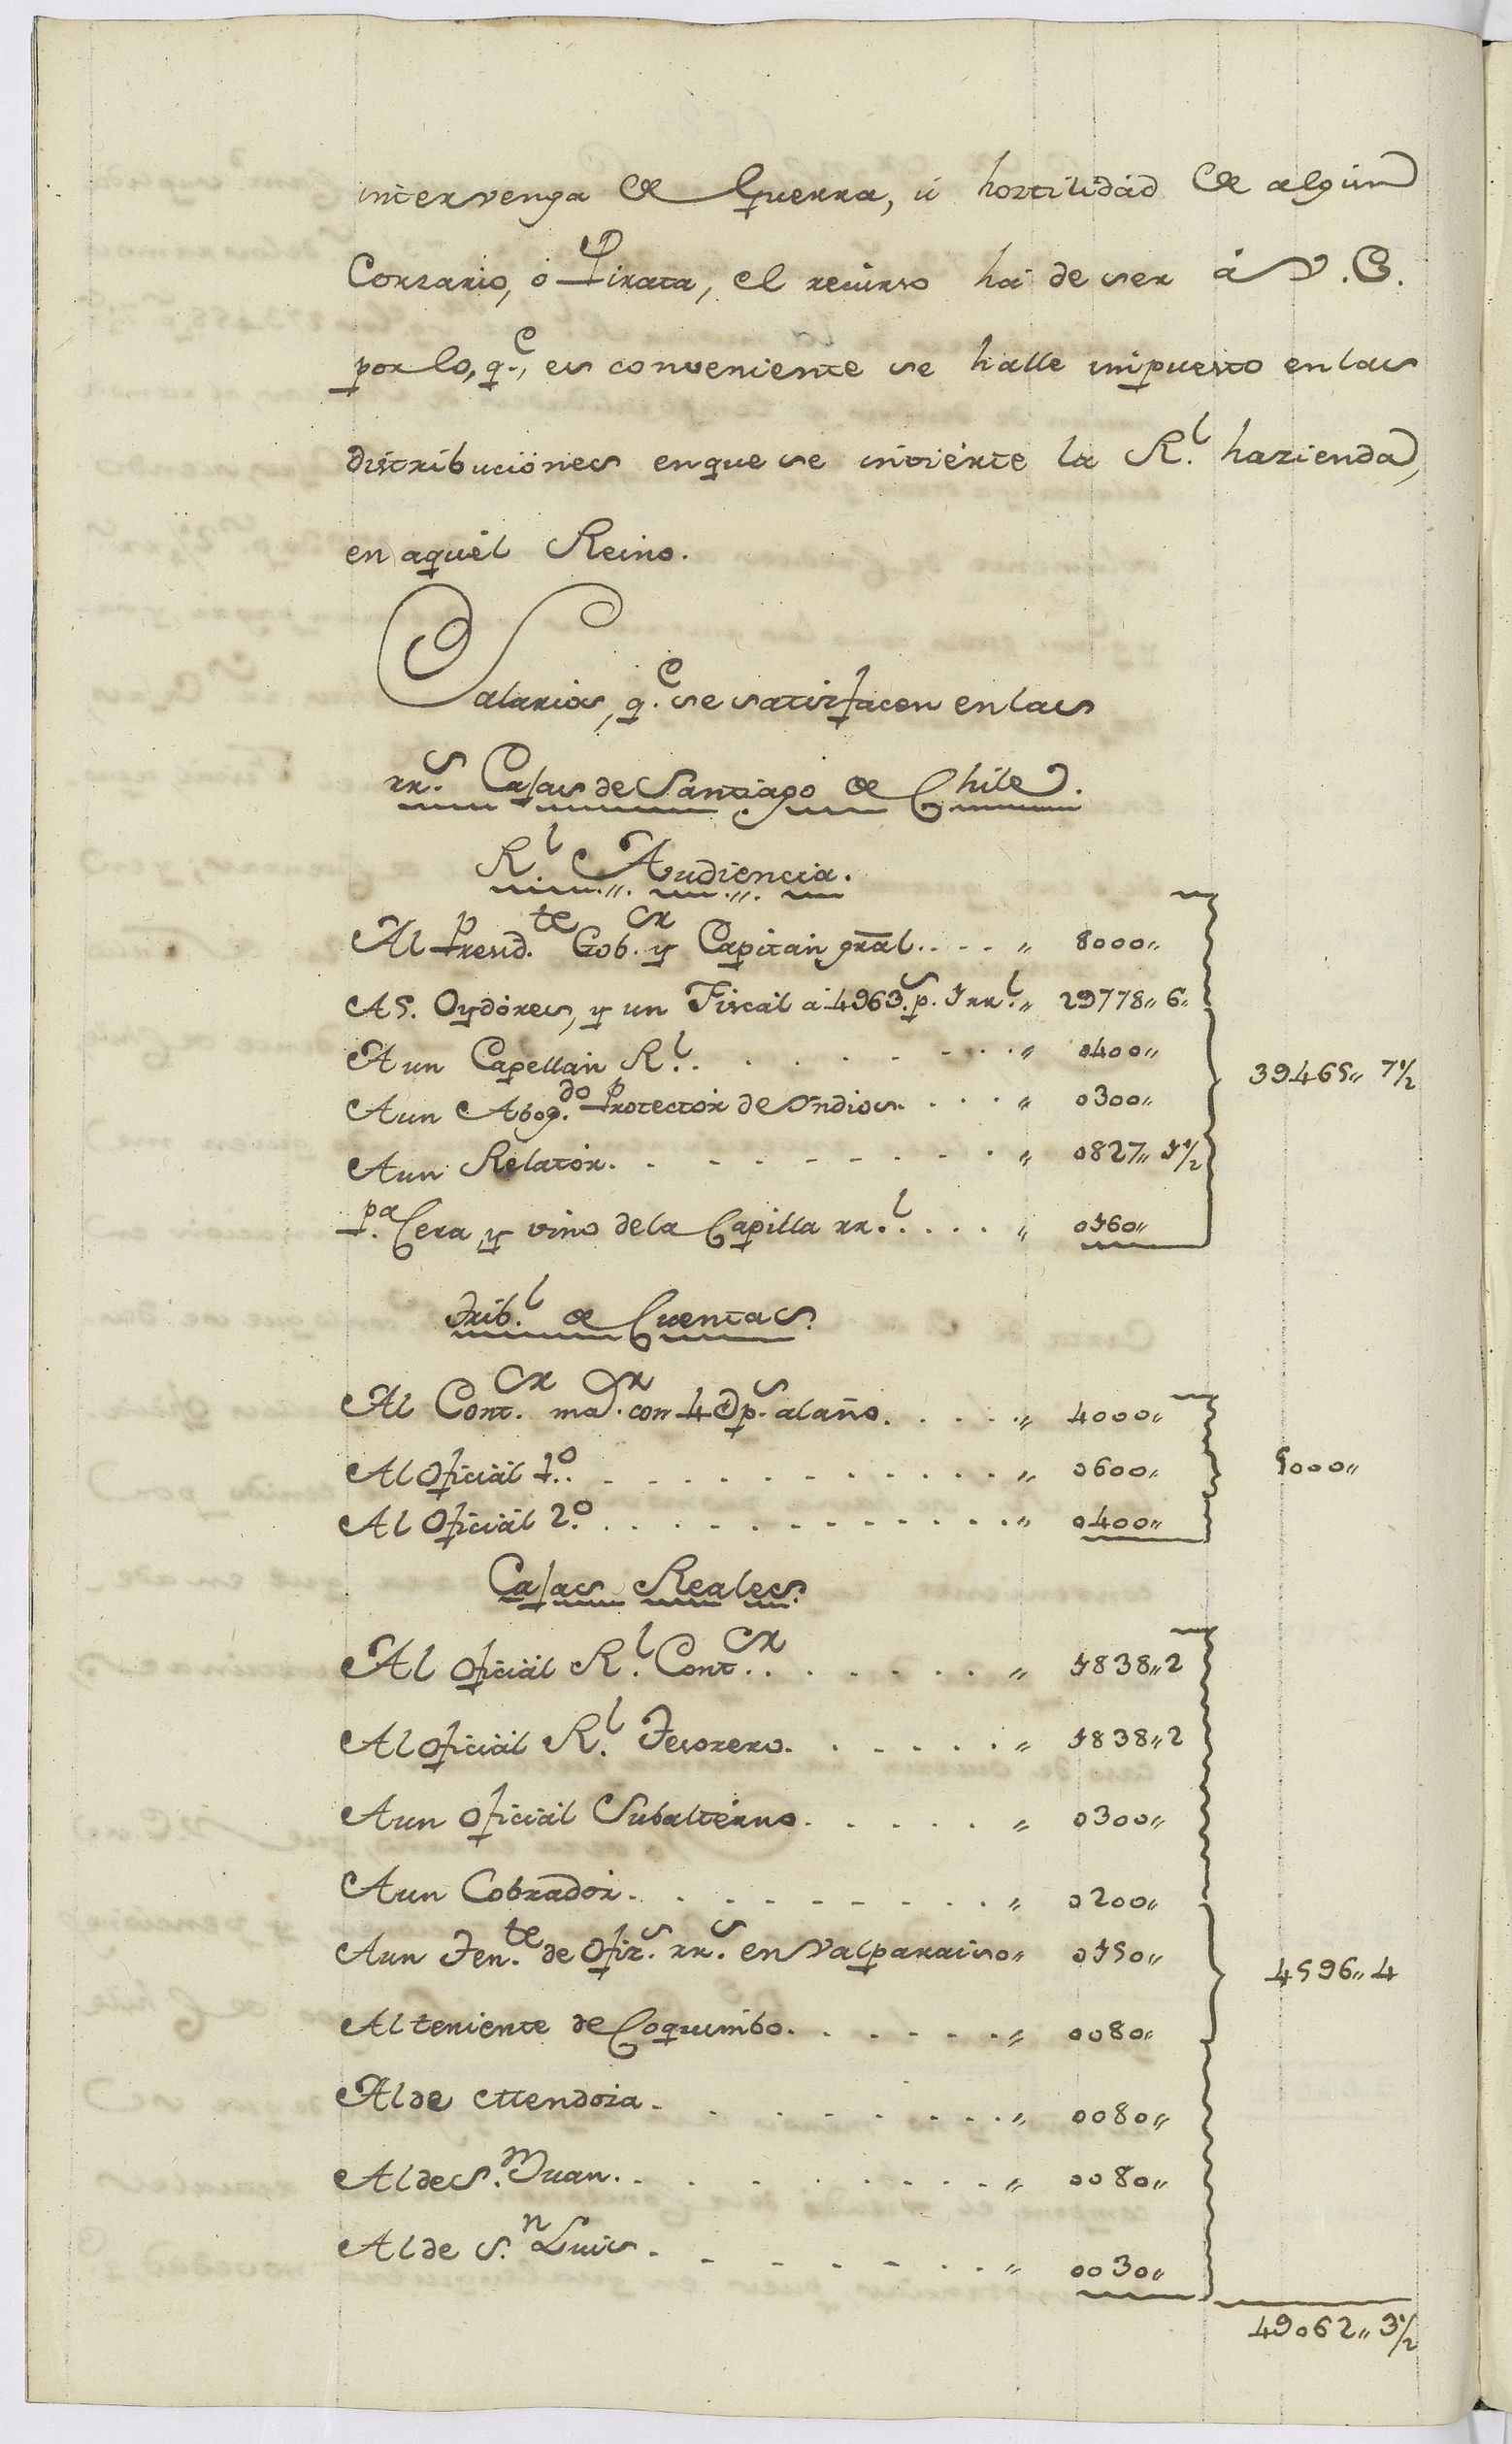 intervenga de Guerra, ú hostilidad de algun
Corsario, ó Pirata, el recurso há de ser á V.E.
por lo, q.e, es conveniente se halle impuesto en las
distribuciónes en que se intierte la R.l hazienda,
en aquél Reino.
Salarios, q.e se satisfacen en las
rr.s Cajas de Santiago de Chile.
R.l Audiencia.
Al Presid.te Gob.or y Capitan gral. . . . „ 8000„ 
A 5. Oydóres, y un Fiscal á 4963.p.s 1 rr.l „ 29778„ 6„
A un Capellan R.l . . . . . . . . „ 0400„ 39465„ 7½
A un Abog.do Protector de Yndios. . . . „ 0300„
A un Relatór. . . . . . . . . „ 0827„ 1½
p.a Cera y vino de la Capilla rr.l . . . . „ 0160„
Trib.l de Cuentas.
Al Cont.or ma.or con 4@p.s al año. . . . . „ 4000„
Al Oficiál 1.o . . . . . . . . . . „ 0600„ 5000„
Al Oficiál 2.o . . . . . . . . . . „ 0400„
Cajas Reales.
Al Oficiál R.l Cont.or . . . . . . . „ 1838„2
Al Oficiál R.l Tesorero. . . . . . „ 1838„2
A un Oficiál Subaltérno. . . . . . „ 0300„
A un Cobradór. . . . . . . . . „ 0200„
A un Ten.te de Ofiz.s rr.s en Valparaiso„ 0150„ 4596„ 4
Al teniente de Coquimbo. . . . . . „ 0080„
Al de Mendoza. . . . . . . . „ 0080„
Al de S.n Juan. . . . . . . . . „ 0080„
Al de S.n Luis. . . . . . . . „ 0030„
49062„ 3½